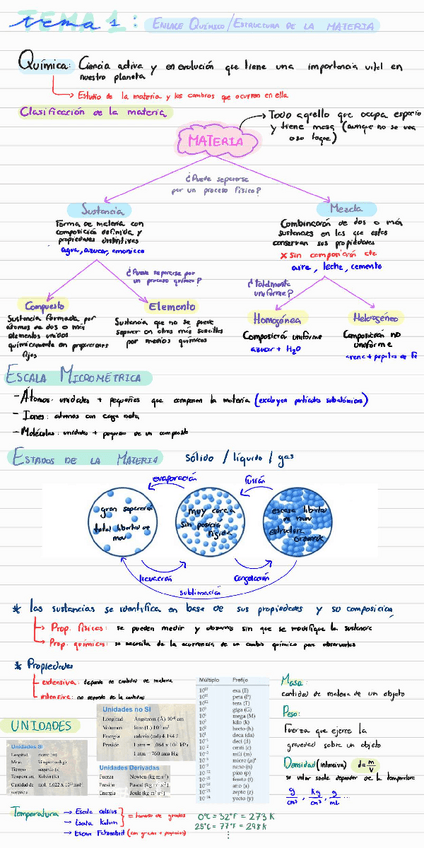 TEMA 1:
tema 1
ENLACE QUÍMICO/ESTRUCTURA DE LA MATERIA
Química: Ciencia activa y en evolución que tiene una importancia vital en
nuestro planeta
Estudio de la materia y los cambios que ocurren en ella
Clasificación de la materia
Todo aquello que ocupa espacio
y tiene masa (aunque no se vea
o se toque)
MATERIA
¿Puede separarse
por un proceso físico?
Sustancia
Forma de materia con
composición definida y
propiedades distintivas
agua, azucar, amoniaco
Mezcla
Combinación de dos o más
sustancias en las que estas
conservan sus propiedades
x sin composición cte
aire, leche, cemento
¿Puede separarse por
un proceso químico?
¿Totalmente
uniforme?
Compuesto
Sustancia formada por
átomos de dos o más
elementos unidos
químicamente en proporciones
fijas
Elemento
Sustancia que no se puede
separar en otras más sencillas
por medios químicos
Homogénea
Composición uniforme
azucar + H2O
Heterogéneo
Composición no
uniforme
arena +
ESCALA MICROMÉTRICA
- Átomos: unidades + pequeñas que componen la materia (excluyen partículas subatómicas)
- Iones: átomos con carga neta
- Moléculas: unidades + pequeñas de un compuesto
ESTADOS DE LA MATERIA sólido / líquido / gas
evaporación
fusión
gran separación
total libertad de
mov
muy cerca
sin posición
rígida
escasa libertad
de mov
estructura
ordenada
licuación
congelación
sublimación
* Las sustancias se identifica en base de sus propiedades y su composición
Prop. físicas: se pueden medir y observar sin que se modifique la sustancia
Prop. químicas: se necesita de la ocurrencia de un cambio químico para observarlas
* Propiedades
extensiva: depende de cantidad de materia
intensiva: no depende de la cantidad
UNIDADES
Unidades SI
Unidades no SI
Longitud Ångstrom (Å) 10⁻⁸ cm
Volumen litro (L) 10⁻³ m³
Energía caloría (cal) 4.184 J
Presión
1 atm = 760 mm Hg
Unidades Derivadas
Fuerza Newton
Presión Pascal
Energía Joule
Múltiplo Prefijo
10¹⁸ exa (E)
10¹⁵ peta (P)
10¹² tera (T)
10⁹ giga (G)
10⁶ mega (M)
10³ kilo (k)
10² hecto (h)
10¹ deca (da)
10⁻¹ deci (d)
10⁻² centi (c)
10⁻³ mili (m)
10⁻⁶ micro (µ)
10⁻⁹ nano (n)
10⁻¹² pico (p)
10⁻¹⁵ femto (f)
10⁻¹⁸ atto (a)
Masa:
cantidad de materia de un objeto
Peso:
Fuerza que ejerce la
gravedad sobre un objeto
Densidad (intensiva) d = m/V
su valor suele depender de la temperatura
g/cm³, kg/m³, g/mL ...
Temperatura → Escala Celsius
→ Escala Kelvin
→ Escala Fahrenheit
= tamaño de grados
0°C = 32°F = 273 K
25°C = 77°F = 298 K